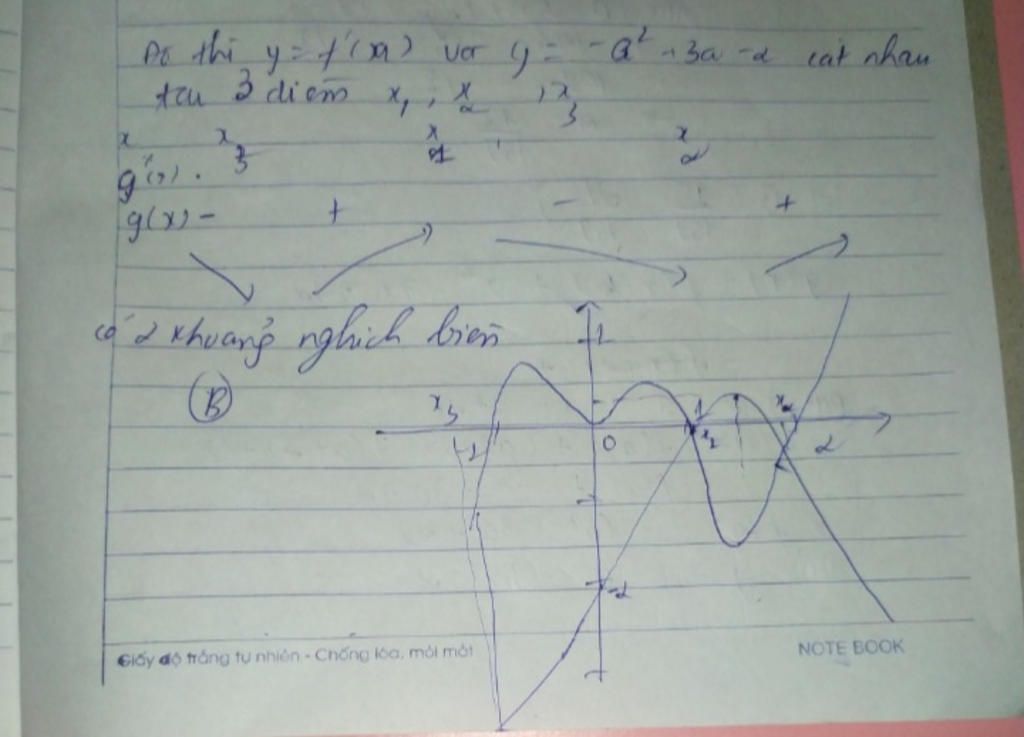 Đồ thị y = f'(x) và y = -a² + 3a - 2 cắt nhau
tại 3 điểm x₁, x₂, x₃
x x₃ x₁ x₂
g'(x)
g(x) - + - +
có 2 khoảng nghịch biến
B
1
x₃ 1 x₂
-1 0 x₁ 2
-2
Giấy độ trắng tự nhiên - Chống lóa, mỏi mắt NOTE BOOK